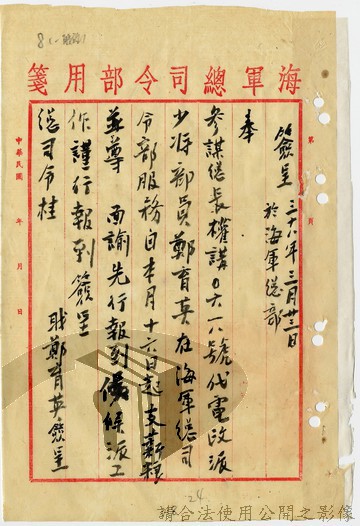 海軍總司令部用箋
簽呈 三十八年三月廿三日
於海軍總部
奉
參謀總長權講0六一八號代電政派
少將部員鄭育英在海軍總司
令部服務自本月十六日起支薪粮
並尊 面諭先行報到候派工
作謹行報到簽呈
總司令桂
職鄭育英簽呈
中華民國 年 月 日
第 頁
24
請合法使用公開之影像